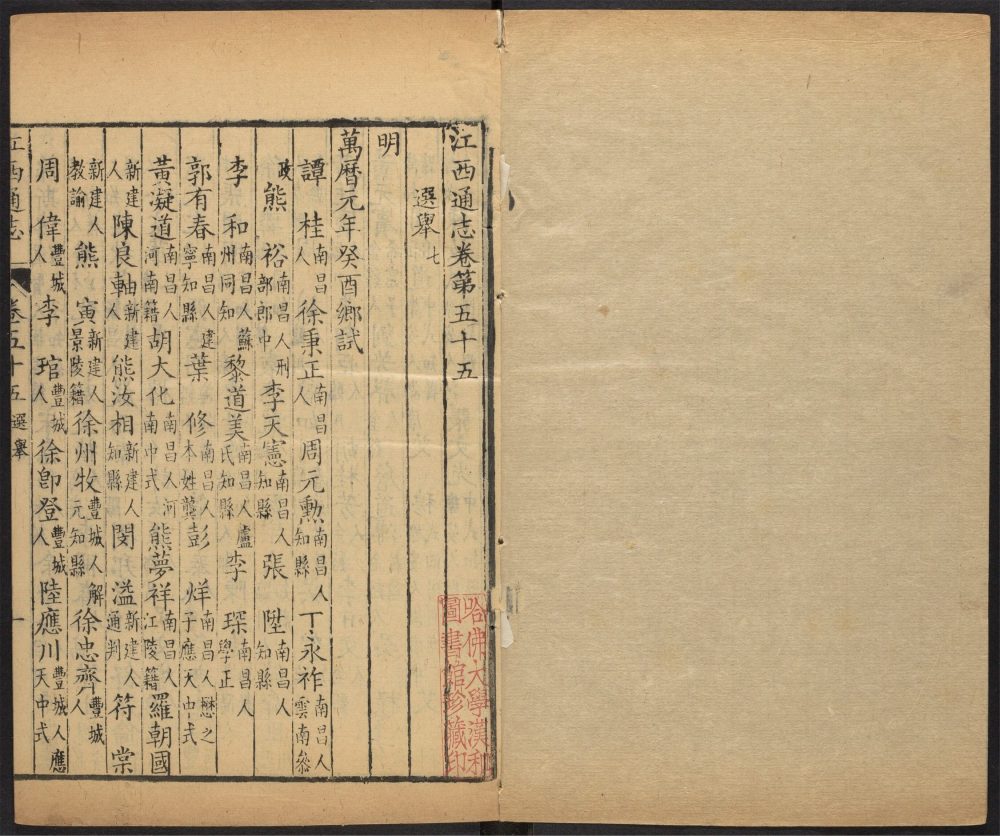 江西通志卷第五十五
選舉七
明
萬曆元年癸酉鄉試
譚桂南昌人 徐秉正南昌人 周元勲南昌人知縣 丁永祚南昌人雲南叅
政 熊裕南昌人刑部郎中 李天憲南昌人知縣 張陞南昌人知縣
李和南昌人蘇州同知 黎道美南昌人盧氏知縣 李琛南昌人學正
郭有春南昌人建寧知縣 葉修南昌人本姓龔 彭烊南昌人懋之子應天中式
黃凝道南昌人河南籍 胡大化南昌人河南中式 熊夢祥南昌人江陵籍 羅朝國
新建人 陳良軸新建人 熊汝相新建人知縣 閔溢新建人通判 符棠
新建人教諭 熊寅新建人景陵籍 徐州牧豐城人解元知縣 徐忠齊豐城人
周偉豐城人 李琯豐城人 徐卽登豐城人 陸應川豐城人應天中式
江西通志 卷五十五 選舉 一
哈佛大學漢和圖書館珍藏印